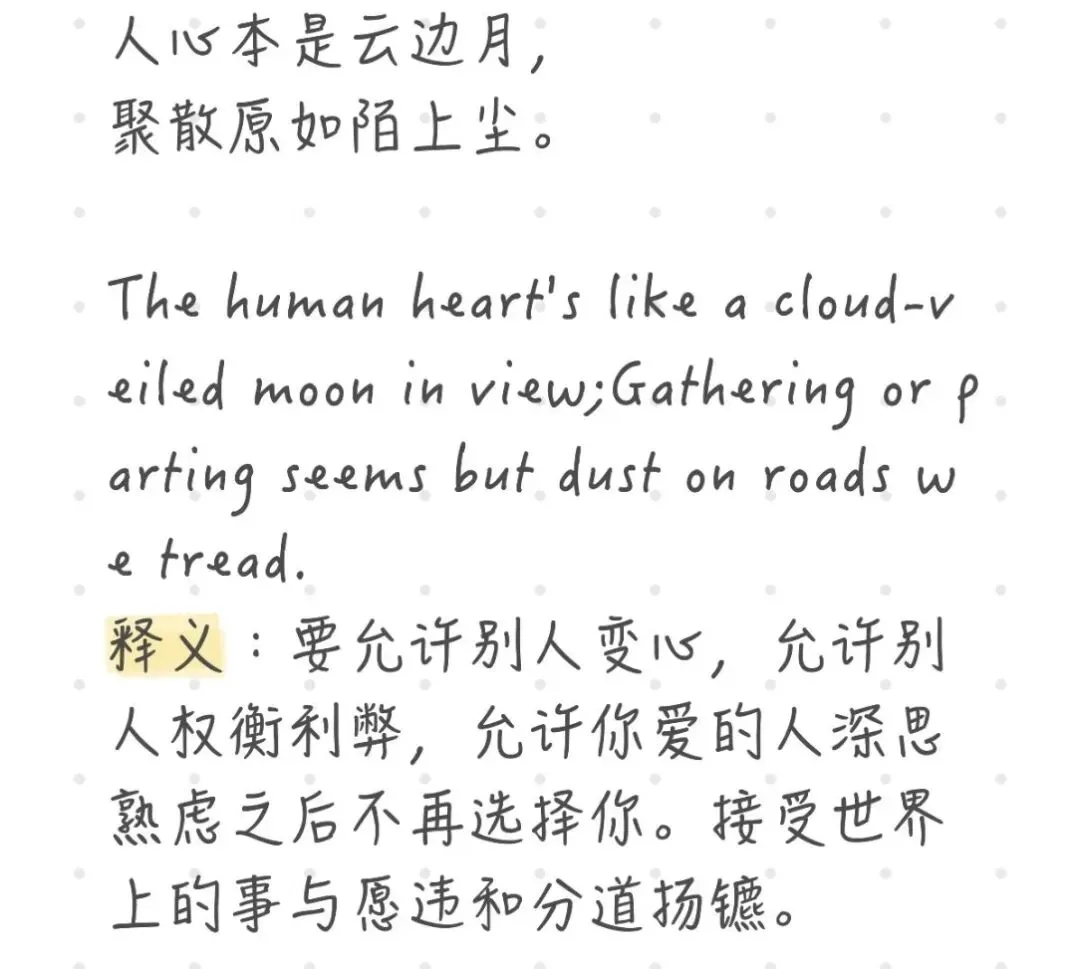 人心本是云边月，
聚散原如陌上尘。
The human heart's like a cloud-v
eiled moon in view;Gathering or p
arting seems but dust on roads w
e tread.
释义：要允许别人变心，允许别
人权衡利弊，允许你爱的人深思
熟虑之后不再选择你。接受世界
上的事与愿违和分道扬镳。